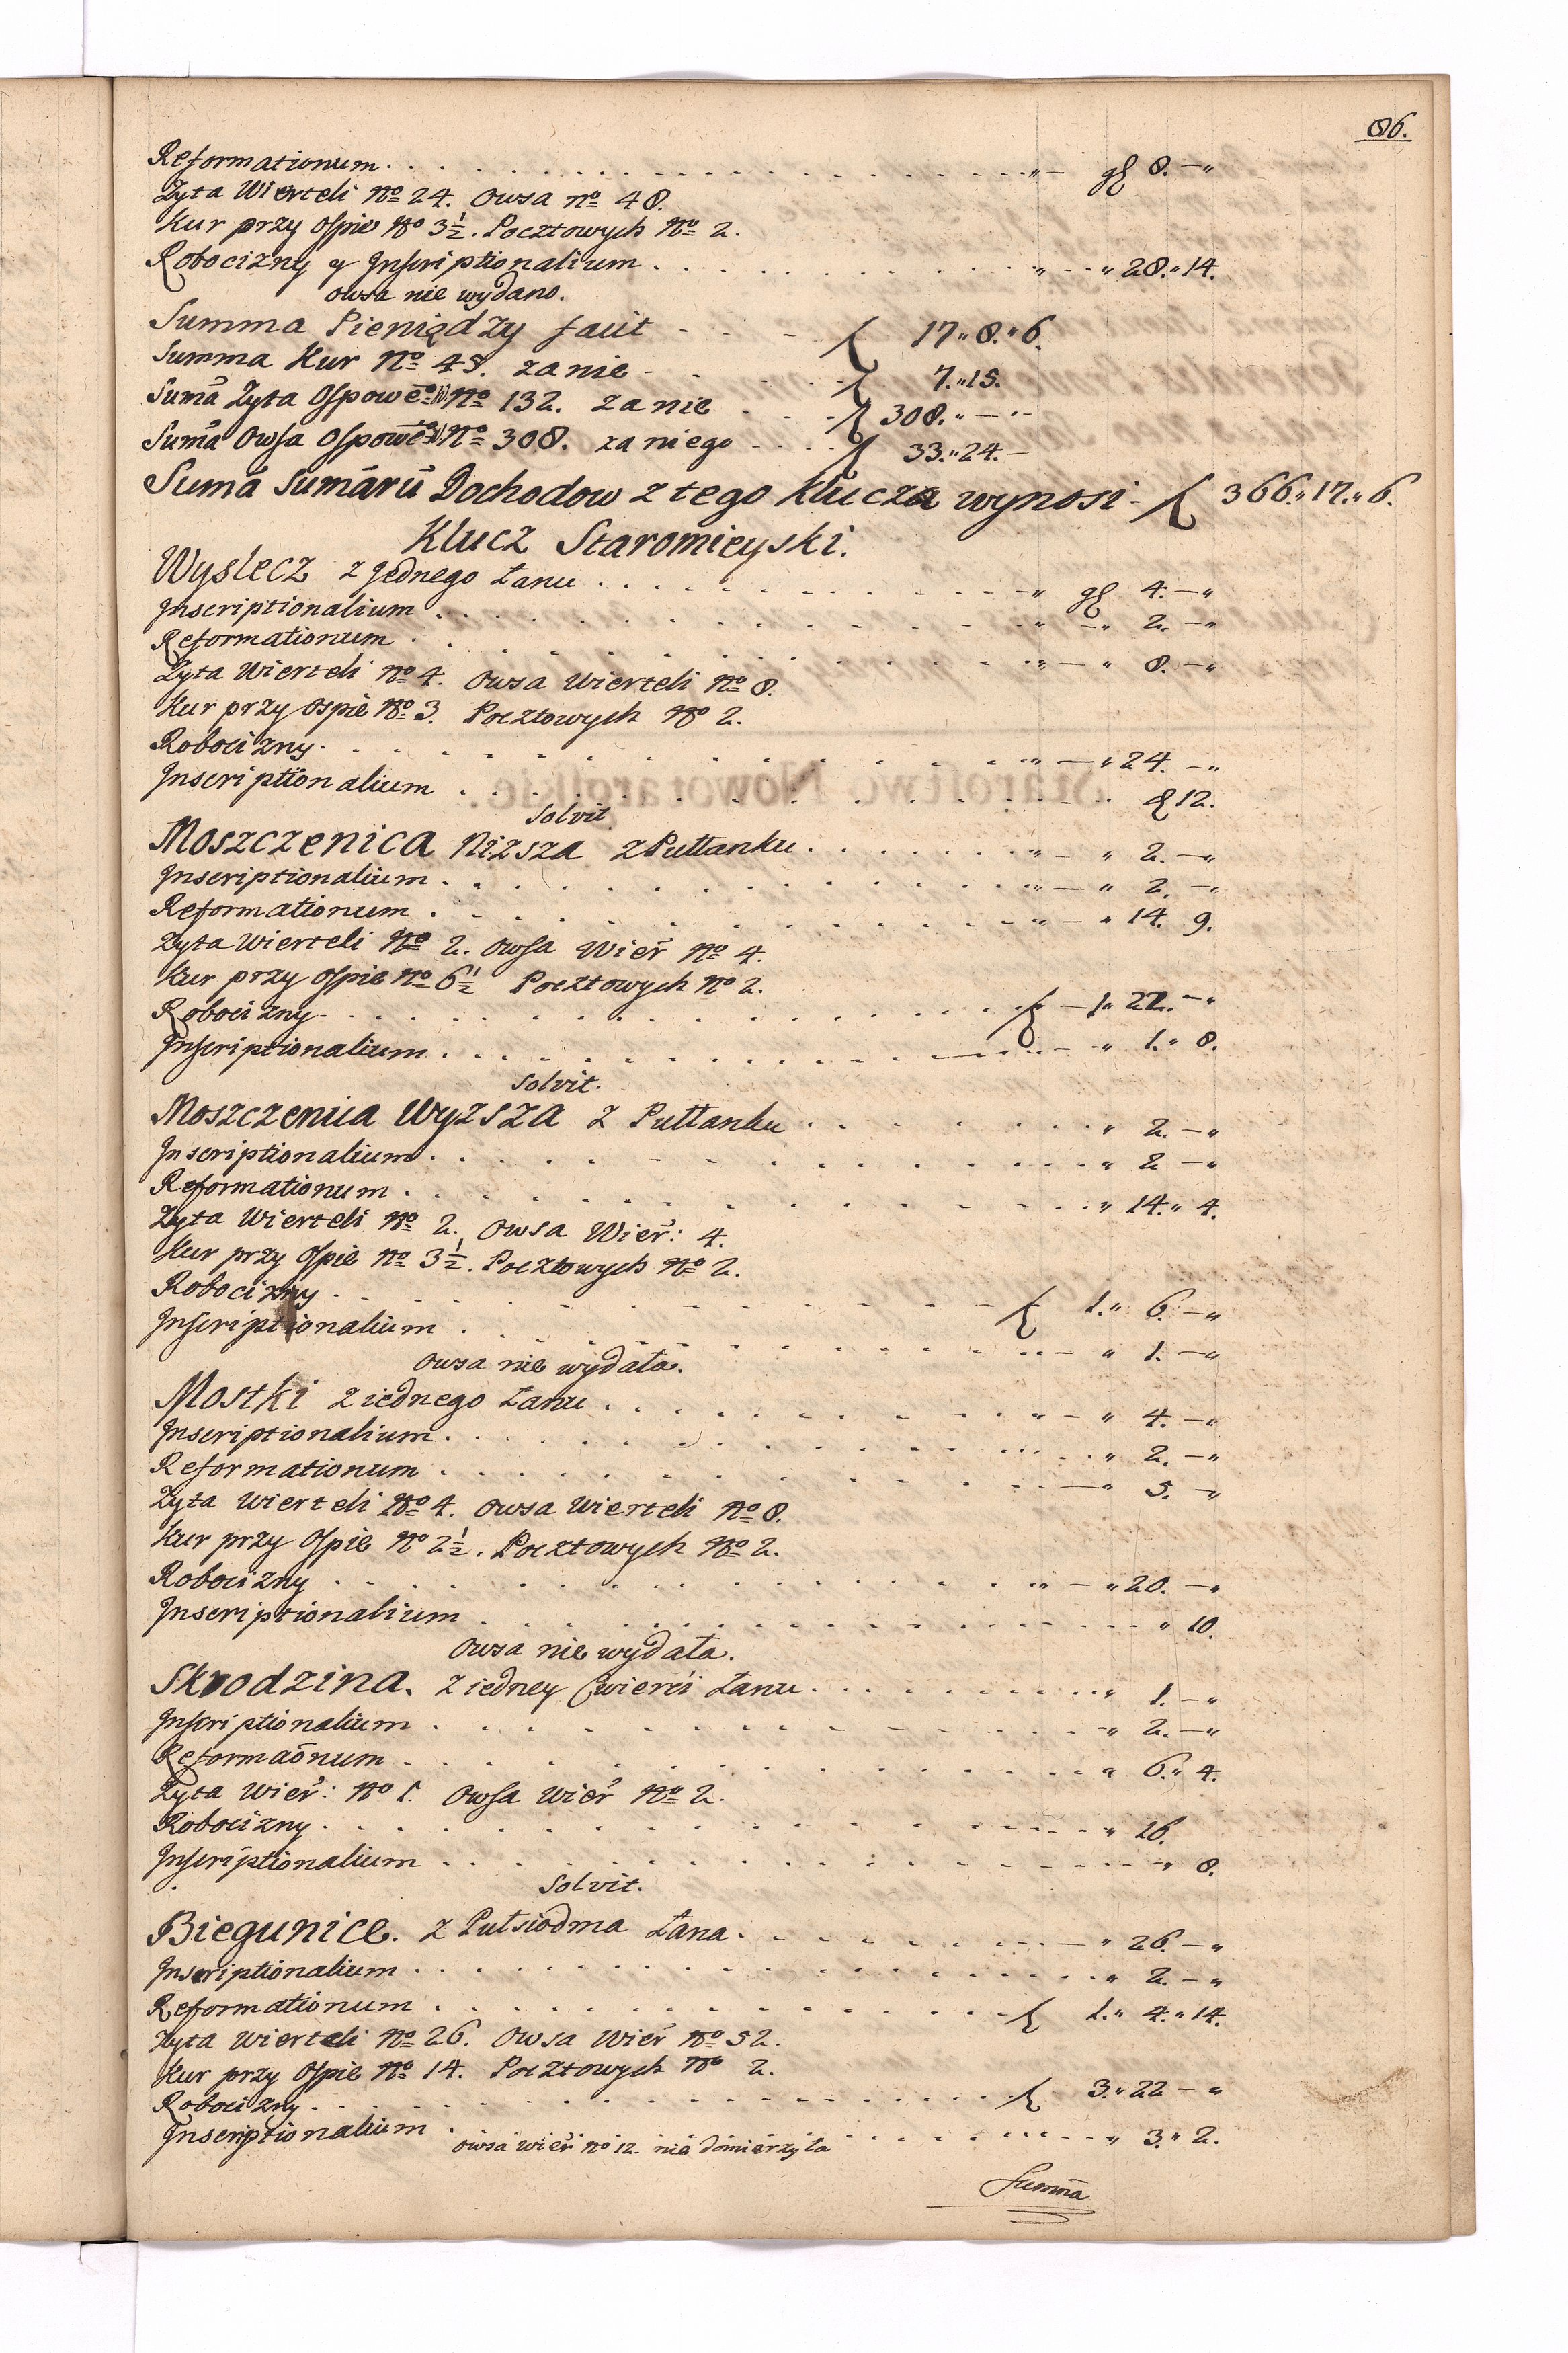 86.
Reformationum . . . . . . . . . . . . . . . „ — g̃ 8. — „
Zyta Wierteli No 24. Owsa no 48.
Kur przy Ospie No 3½. Pocztowych No 2.
Robocizny y Inscriptionalium . . . . . . . . . . . „ - - „ 28. „ 14.
owsa nie wydano.
Summa Pieniędzy facit - . . - ƒ 17 „ 8. „ 6.
Summa Kur No 45. za nie - . . . - ƒ 7. „ 15.
Sumā Zyta Ospowēo No 132. za nie . . . - ƒ 308. „ — „ -
Sumā Owsa Ospowēo No 308. za niego . . . ƒ 33. „ 24. —
Sumā Sumārū Dochodow z tego Klucza wynosi - ƒ 366. „ 17. „ 6.
Klucz Staromieyski.
Wyslecz z Jednego Łanu . . . . . . . . . . . — „ g̃ 4. — „
Inscriptionalium . . . . . . . . . . . „ — „ 2. — „
Reformationum . . . . . . . . . . . „ — „ 8. — „
Zyta Wierteli no 4. Owsa Wierteli No 8.
Kur przy ospie No 3. Pocztowych No 2.
Robocizny . . . . . . . . . . . „ — „ 24. — „
Inscriptionalium . . . . . . . . . . . „ 12.
Solvit
Moszczenica Niższa z Pułłanku . . . . . . . „ — „ 2. — „
Inscriptionalium . . . . . . . . . . . „ — „ 2. — „
Reformationum . . . . . . . . . . . „ — „ 14. 9.
Zyta Wierteli No 2. Owsa Wier̄ No 4.
Kur przy Ospie No 6½ Pocztowych No 2.
Robocizny . . . . . . . . . . . ƒ — 1. „ 22. — „
Inscriptionalium . . . . . . . . . . . — „ 1. „ 8.
Solvit.
Moszczenica Wyzsza z Pułłanku . . . . . . . „ 2. — „
Inscriptionalium . . . . . . . . . . . „ 2 — „
Reformationum . . . . . . . . . . . „ 14. „ 4.
Zyta Wierteli No 2. Owsa Wier̄: 4.
Kur przy Ospie No 3½. Pocztowych No 2.
Robocizny . . . . . . . . . . . ƒ 1. „ 6. — „
Inscriptionalium . . . . . . . . . . . — „ 1. — „
owsa nie wydała.
Mostki z iednego Łanu . . . . . . . . . „ — „ 4. — „
Inscriptionalium . . . . . . . . . . . „ 2. — „
Reformationum . . . . . . . . . . . — „ 5. — „
Zyta Wierteli No 4. Owsa Wierteli No 8.
Kur przy Ospie No 2½. Pocztowych No 2.
Robocizny . . . . . . . . . . . „ — „ 20. — „
Inscriptionalium . . . . . . . . . . . „ 10.
Owsa nie wydała.
Skrodzina. z iedney Cwierci Łanu . . . . . . . „ 1. — „
Inscriptionalium . . . . . . . . . . . „ 2. — „
Reformaōnum . . . . . . . . . . . „ 6. „ 4.
Zyta Wier̄: No 1. Owsa Wier̄ No 2.
Robocizny . . . . . . . . . . . „ 16.
Inscriptionalium . . . . . . . . . . . „ 8.
Solvit.
Biegunice. z Pułsiodma Łana . . . . . . . — „ 26. — „
Inscriptionalium . . . . . . . . . . . „ 2. — „
Reformationum . . . . . . . . . . . ƒ 1. „ 4. „ 14.
Zyta Wierteli No 26. Owsa Wier̄ No 52.
Kur przy Ospie No 14. Pocztowych No 2.
Robocizny . . . . . . . . . . . ƒ 3. „ 22 — „
Inscriptionalium . . . . . . . . . . . „ 3. „ 2.
owsa Wier̄ no 12. nie domierzyła
Summa